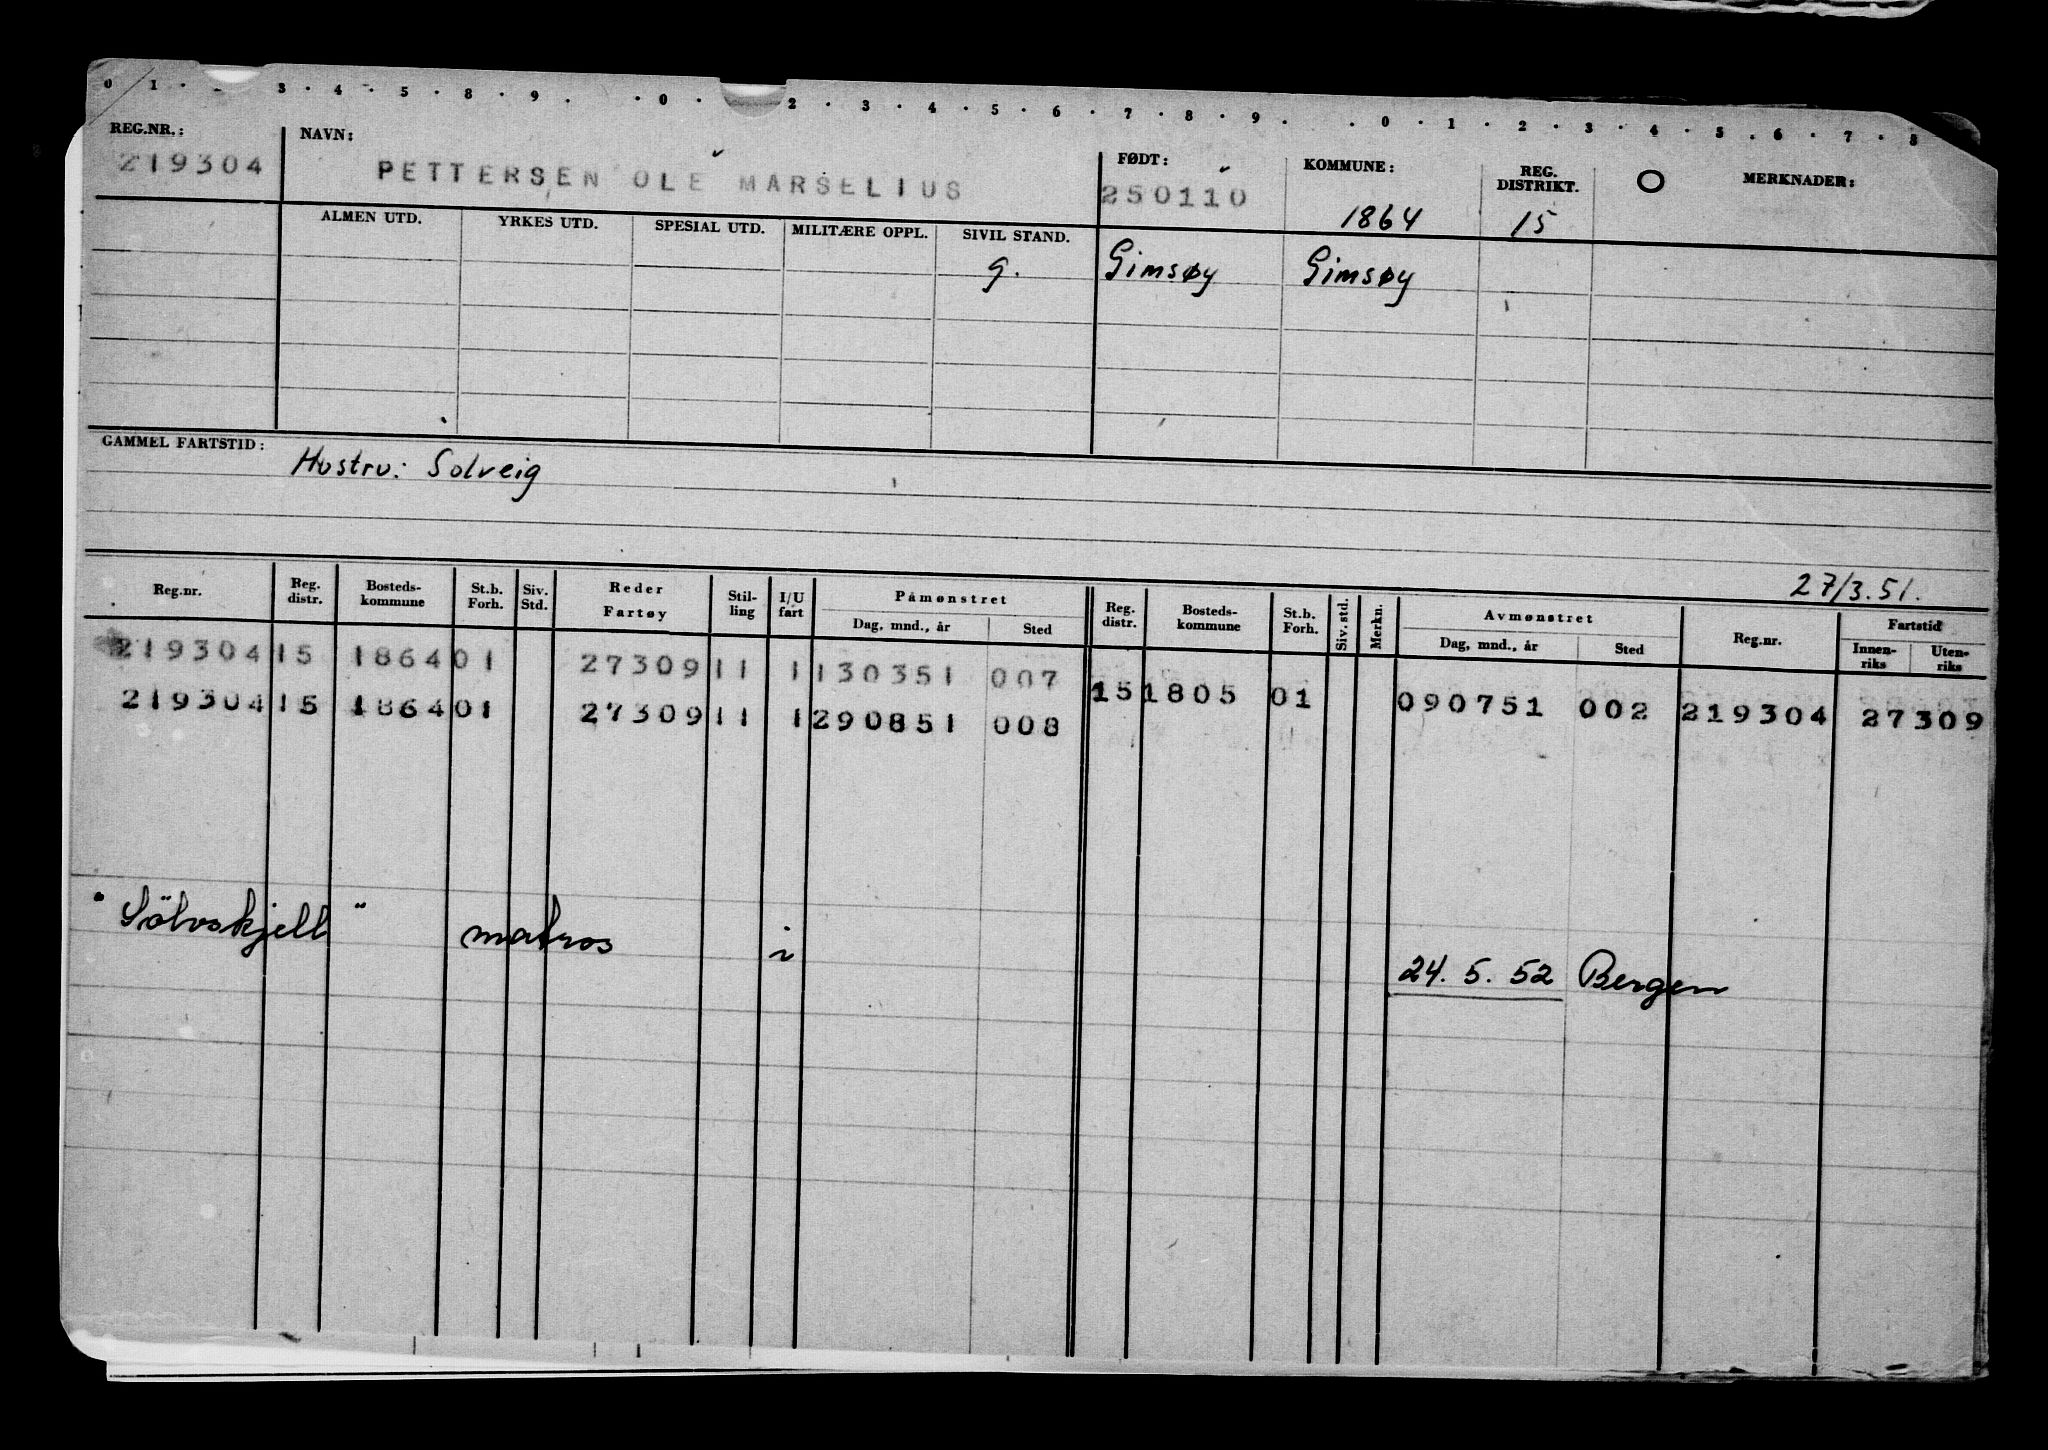 0 1 · 3 · 4 · 5 · 8 · 9 · · 0 · 2 · 3 · 4 · 5 · 6 · 7 · 8 · 9 · · 0 · 1 · 2 · 3 · 4 · 5 · 6 · 7 · 8
REG.NR.: NAVN: FØDT: KOMMUNE: REG. DISTRIKT. O MERKNADER:
219304 PETTERSEN OLE MARSELIUS 250110 1864 15
ALMEN UTD. YRKES UTD. SPESIAL UTD. MILITÆRE OPPL. SIVIL STAND.
g. Gimsøy Gimsøy
GAMMEL FARTSTID: Hustru: Solveig
27/3.51.
Reg.nr. Reg. distr. Bosteds- kommune St.b. Forh. Siv. Std. Reder Fartøy Stil- ling I/U fart Påmønstret Reg. distr. Bosteds- kommune St.b. Forh. Siv. std. Merkn. Avmønstret Reg.nr. Fartstid
Dag, mnd., år Sted Dag, mnd., år Sted Innen- riks Uten- riks
219304 15 1864 01 27309 11 1 130351 007
219304 15 1864 01 27309 11 1 290851 008 15 1805 01 090751 002 219304 27309
"Sölvskjell" matros i 24. 5. 52 Bergen